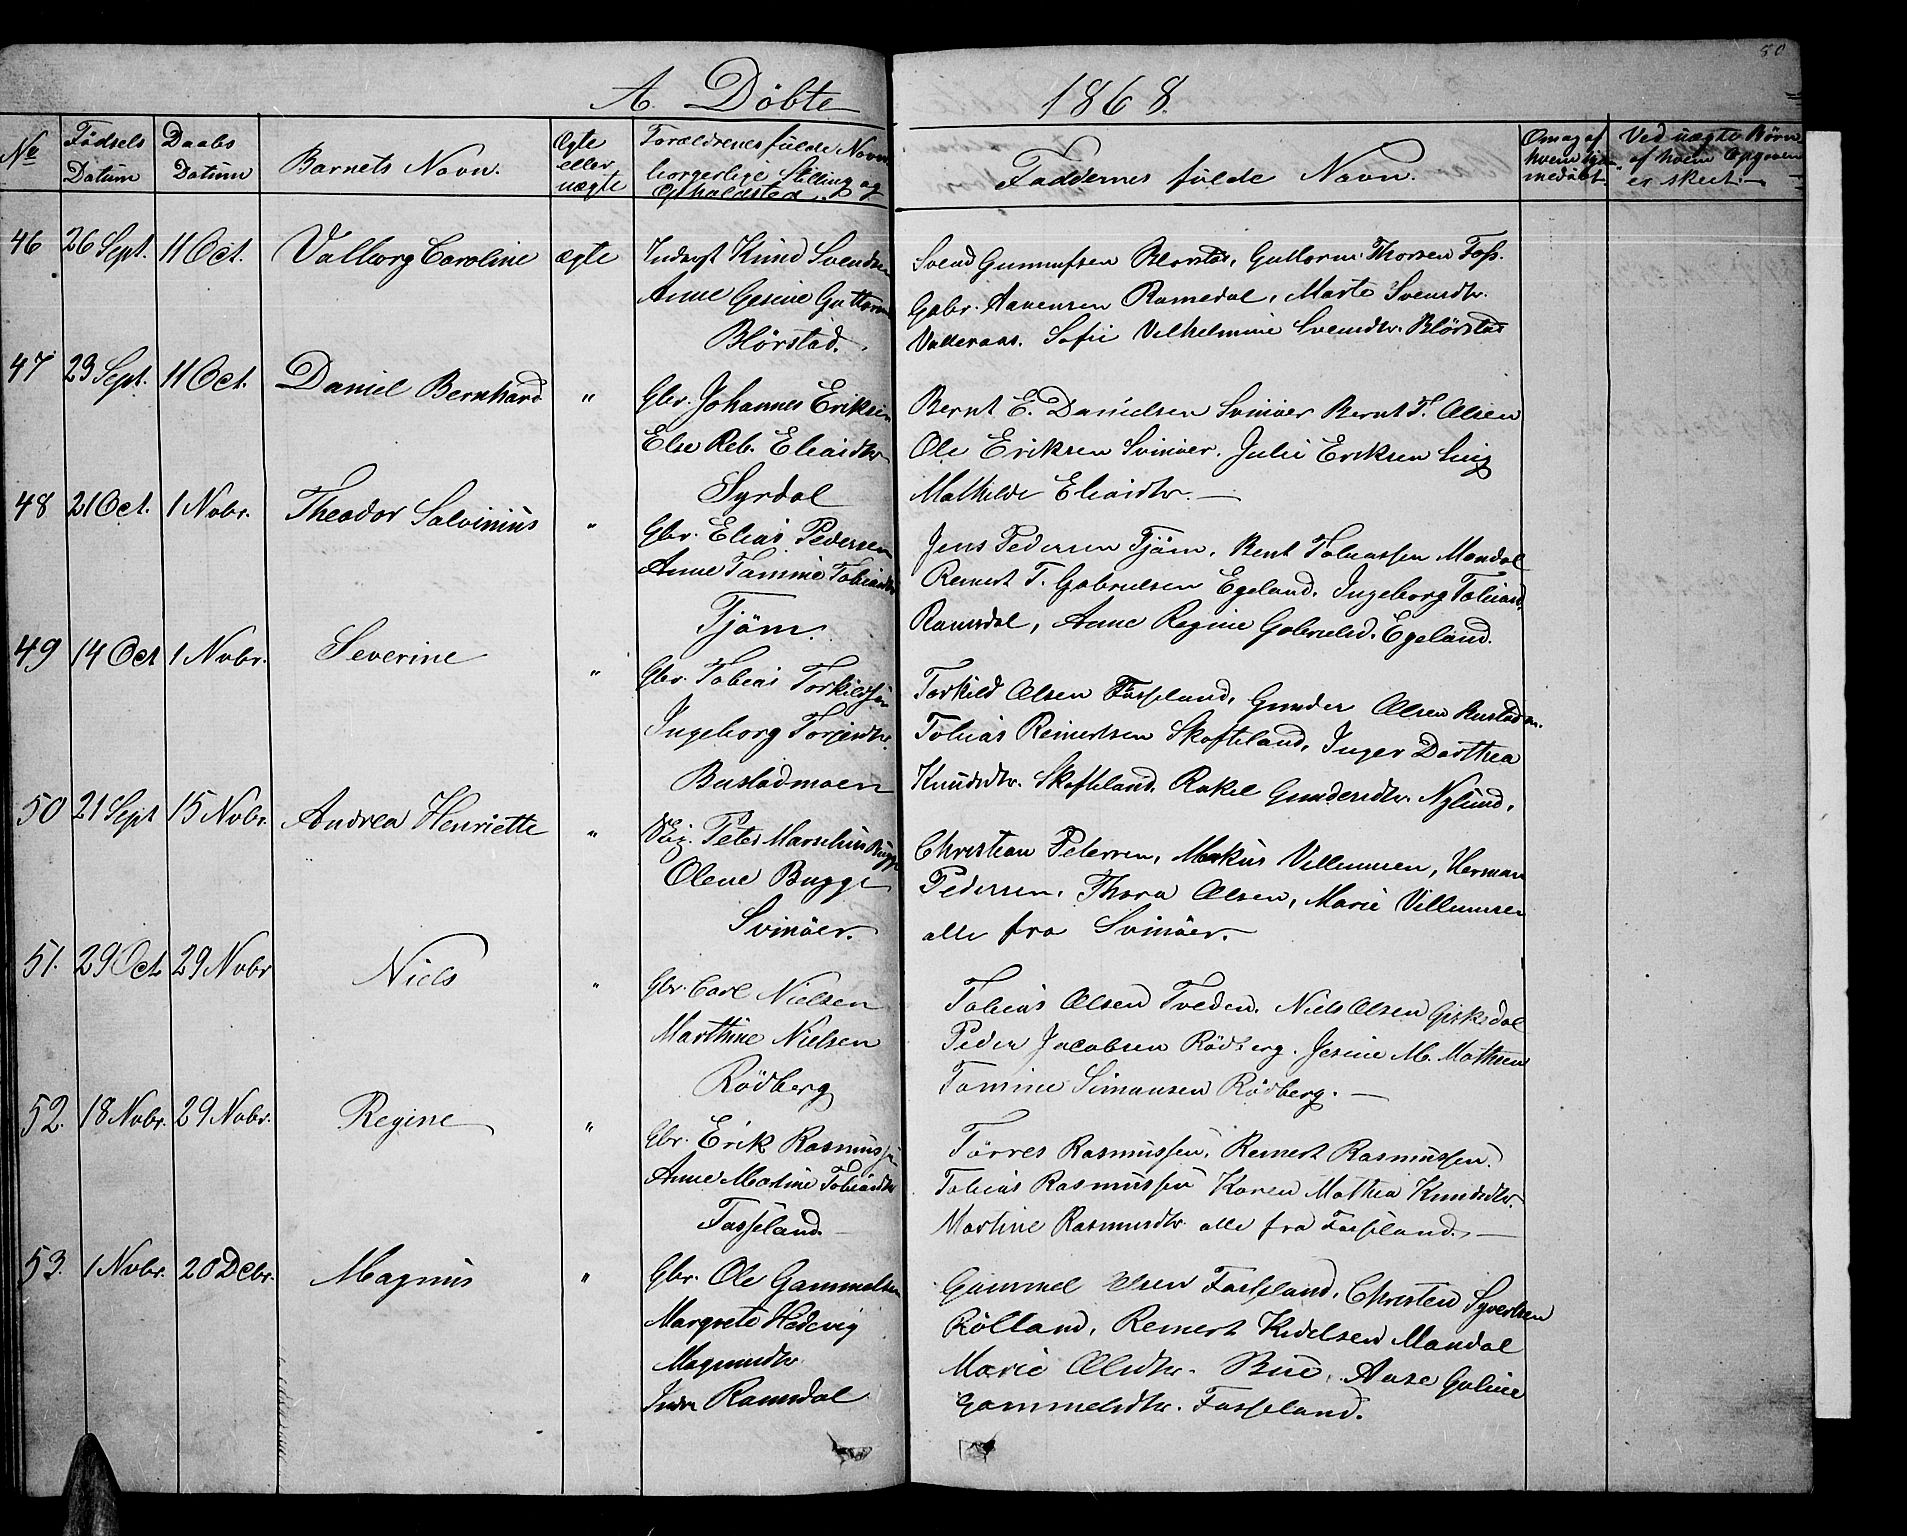 80
A. Döbte 1868.
No Fødsels Datum Daabs Datum Barnets Navn. Ægte eller uægte Forældrenes fulde Navn, borgerlige Stilling og Opholdsted. Faddernes fulde Navn. Ved uægte Børn af hvem Opgiven er skeet.
46 26 Sept. 11 Oct. Valborg Caroline ægte
Knud Svendsen
Anne Gesine
Blørstad.
Svend Blørstad, Guttorm Thorsen Foss.
Gabr. Aanensen Ramsdal, Marte Svensdtr.
Valleraas. Sofie Vilhelmine Svensdtr. Blørstad
47 23 Sept. 11 Oct. Daniel Bernhard "
Gbr. Johannes Eriksen
Else Reb. Eliasdtr
Syrdal
Bernt E. Danielsen Svinöer Bernt T. Olsen
Ole Eriksen Svinöer. Julie Eriksen
Mathilde Eliasdtr. —
48 21 Oct. 1 Nobr. Theodor Salvinius "
Gbr. Elias Pedersen
Anne Tamine Tobiasdtr
Tjöm.
Jens Pedersen Tjöm, Bent Tobiassen Mandal
Reinert T. Gabrielsen Egeland, Ingeborg Tobiasd.
Ramsdal, Anne Regine Gabrielsd. Egeland.
49 14 Oct 1 Nobr. Severine "
Gbr. Tobias Torkildsen
Ingeborg Torjesdtr.
Bustadmoen
Torkild Olsen Fasseland, Gunder Olsen Bustadm.
Tobias Reinertsen Skofteland, Inger Dorthea
Knudsdtr. Skofteland. Rakel Gundersdtr. Nylund,
50 21 Sept 15 Nobr. Andrea Henriette "
Peter Marselius Bugge
Olene Bugge
Svinöer.
Christian Petersen, Markus Villumsen, Herman
Pedersen, Thora Olsen, Marie Villumsen
alle fra Svinöer.
51. 29 Oct. 29 Nobr Niels "
Gbr. Carl Nielsen
Marthine Nielsen
Rödberg
Tobias Olsen Tveden. Niels Olsen Giskedal
Peder Jacobsen Rödberg. Jesine M. Mathsen
Tomine Simonsen Rödberg. —
52. 18 Nobr. 29 Nobr. Regine "
Gbr. Erik Rasmussen
Anne Martine Tobiasdtr
Fasseland. —
Törres Rasmussen, Reinert Rasmussen.
Tobias Rasmussen Karen Mathea Knudsdtr.
Martine Rasmusdtr. alle fra Fasseland. —
53. 1 Nobr. 20 Debr. Magnus "
Gbr. Ole Gammelsen
Margrete Hedevig
Magnusdtr.
Indre Ramsdal
Gammel Olsen Fasseland, Christen Syvertsen
Rölland, Reinert Kidelsen Mandal
Marie Olsdtr. Bue, Aase Galine
Gammelsdtr. Fasseland.